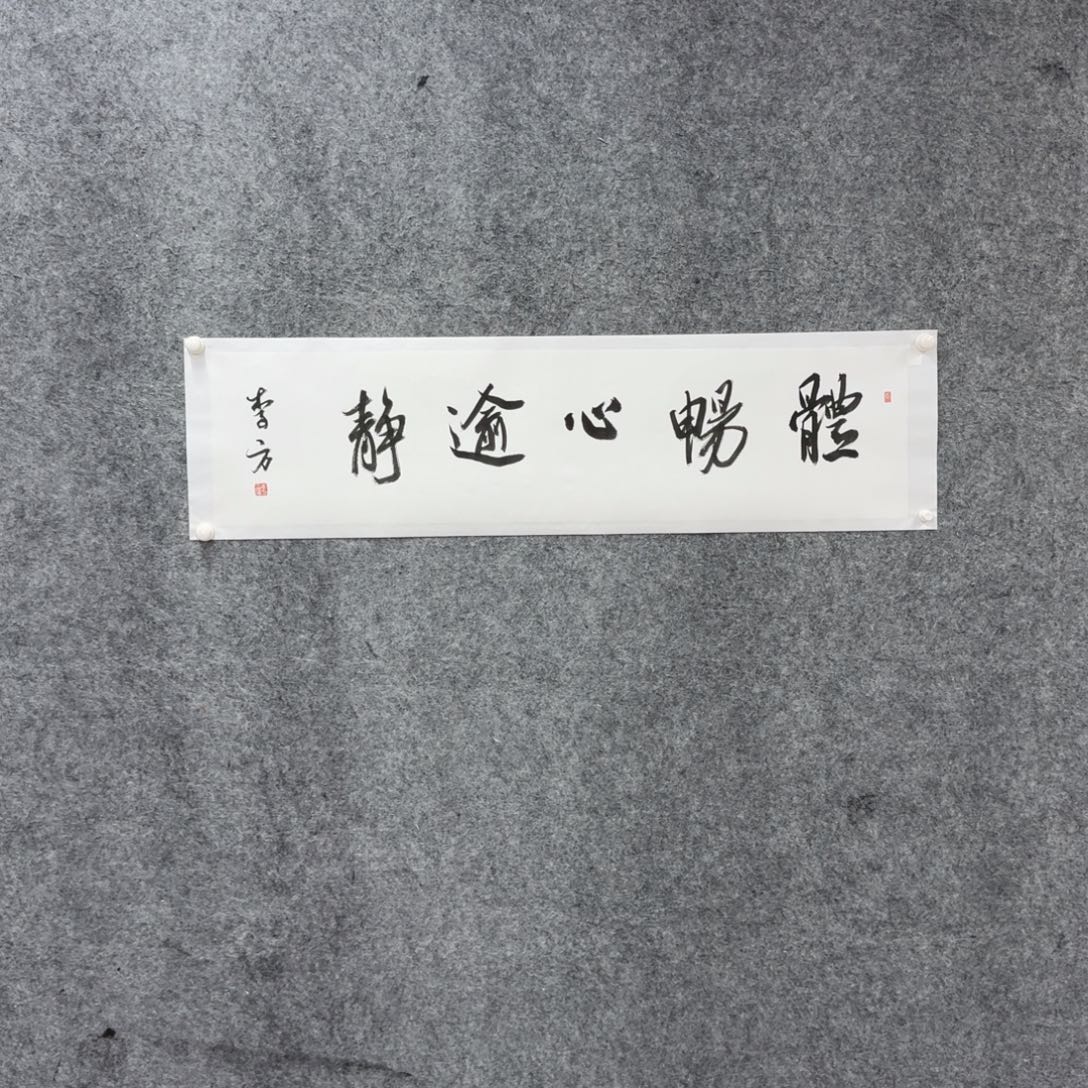 體暢心逾靜
李方